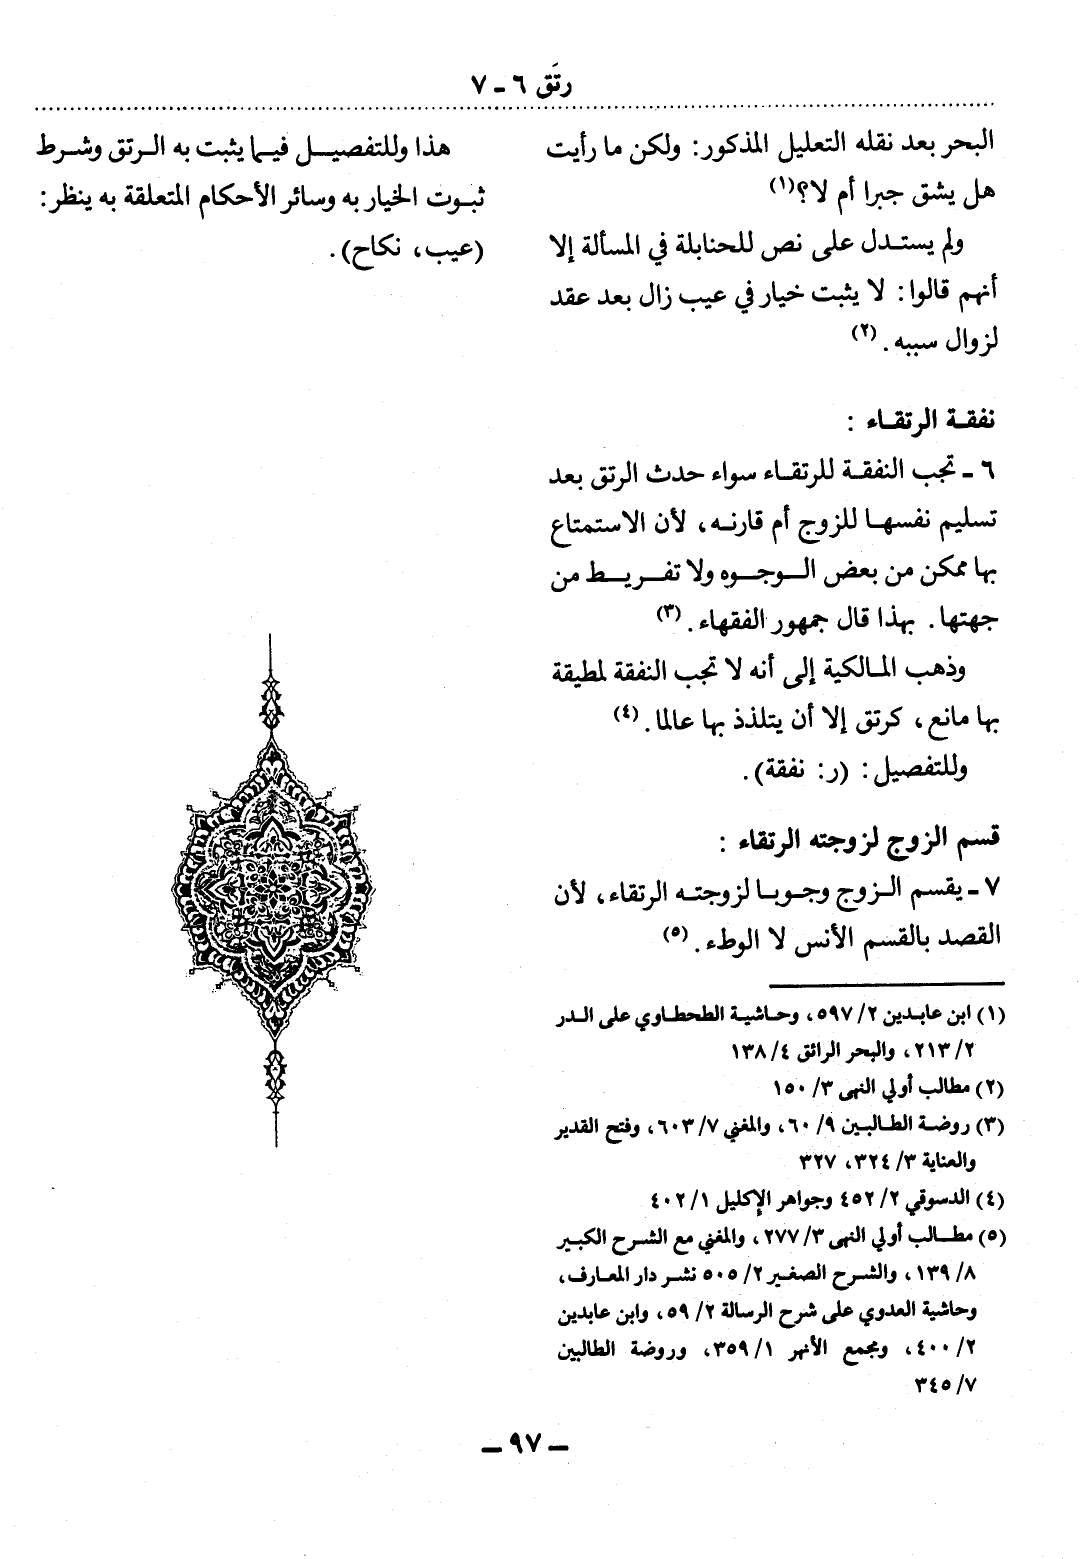 رتَق ٦ ـ ٧
البحر بعد نقله التعليل المذكور: ولكن ما رأيت
هل يشق جبرا أم لا؟(١)
ولم يستدل على نص للحنابلة في المسألة إلا
أنهم قالوا: لا يثبت خيار في عيب زال بعد عقد
لزوال سببه. (٢)
نفقة الرتقاء :
٦ ـ تجب النفقة للرتقاء سواء حدث الرتق بعد
تسليم نفسها للزوج أم قارنه، لأن الاستمتاع
بها ممكن من بعض الوجوه ولا تفريط من
جهتها. بهذا قال جمهور الفقهاء. (٣)
وذهب المالكية إلى أنه لا تجب النفقة لمطيقة
بها مانع، كرتق إلا أن يتلذذ بها عالما. (٤)
وللتفصيل : (ر: نفقة).
قسم الزوج لزوجته الرتقاء :
٧ ـ يقسم الزوج وجوبا لزوجته الرتقاء، لأن
القصد بالقسم الأنس لا الوطء. (٥)
(١) ابن عابدين ٢/ ٥٩٧، وحاشية الطحطاوي على الدر
٢/ ٢١٣، والبحر الرائق ٤/ ١٣٨
(٢) مطالب أولي النهى ٣/ ١٥٠
(٣) روضة الطالبين ٩/ ٦٠، والمغني ٧/ ٦٠٣، وفتح القدير
والعناية ٣/ ٣٢٤، ٣٢٧
(٤) الدسوقي ٢/ ٤٥٢ وجواهر الإكليل ١/ ٤٠٢
(٥) مطالب أولي النهى ٣/ ٢٧٧، والمغني مع الشرح الكبير
٨/ ١٣٩، والشرح الصغير ٢/ ٥٠٥ نشر دار المعارف،
وحاشية العدوي على شرح الرسالة ٢/ ٥٩، وابن عابدين
٢/ ٤٠٠، ومجمع الأنهر ١/ ٣٥٩، وروضة الطالبين
٧/ ٣٤٥
هذا وللتفصيل فيما يثبت به الرتق وشرط
ثبوت الخيار به وسائر الأحكام المتعلقة به ينظر:
(عيب، نكاح).
ـ ٩٧ ـ